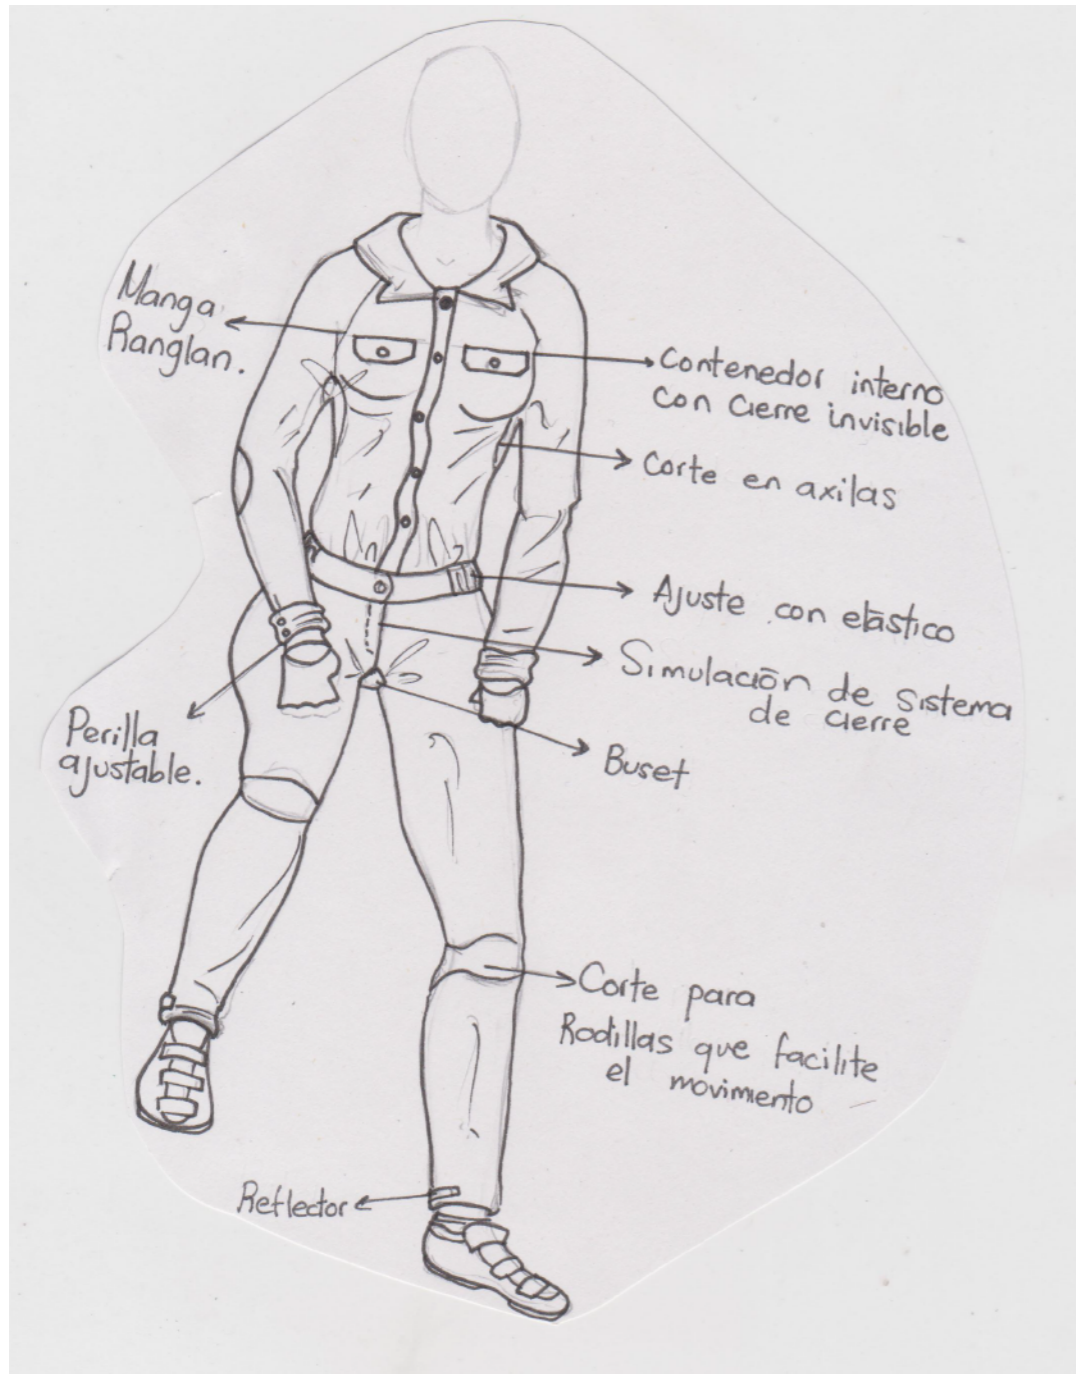 Manga
Ranglan.
Contenedor interno
con cierre invisible
Corte en axilas
Ajuste con elástico
Simulación de sistema
de cierre
Perilla
ajustable.
Buset
Corte para
Rodillas que facilite
el movimiento
Reflector